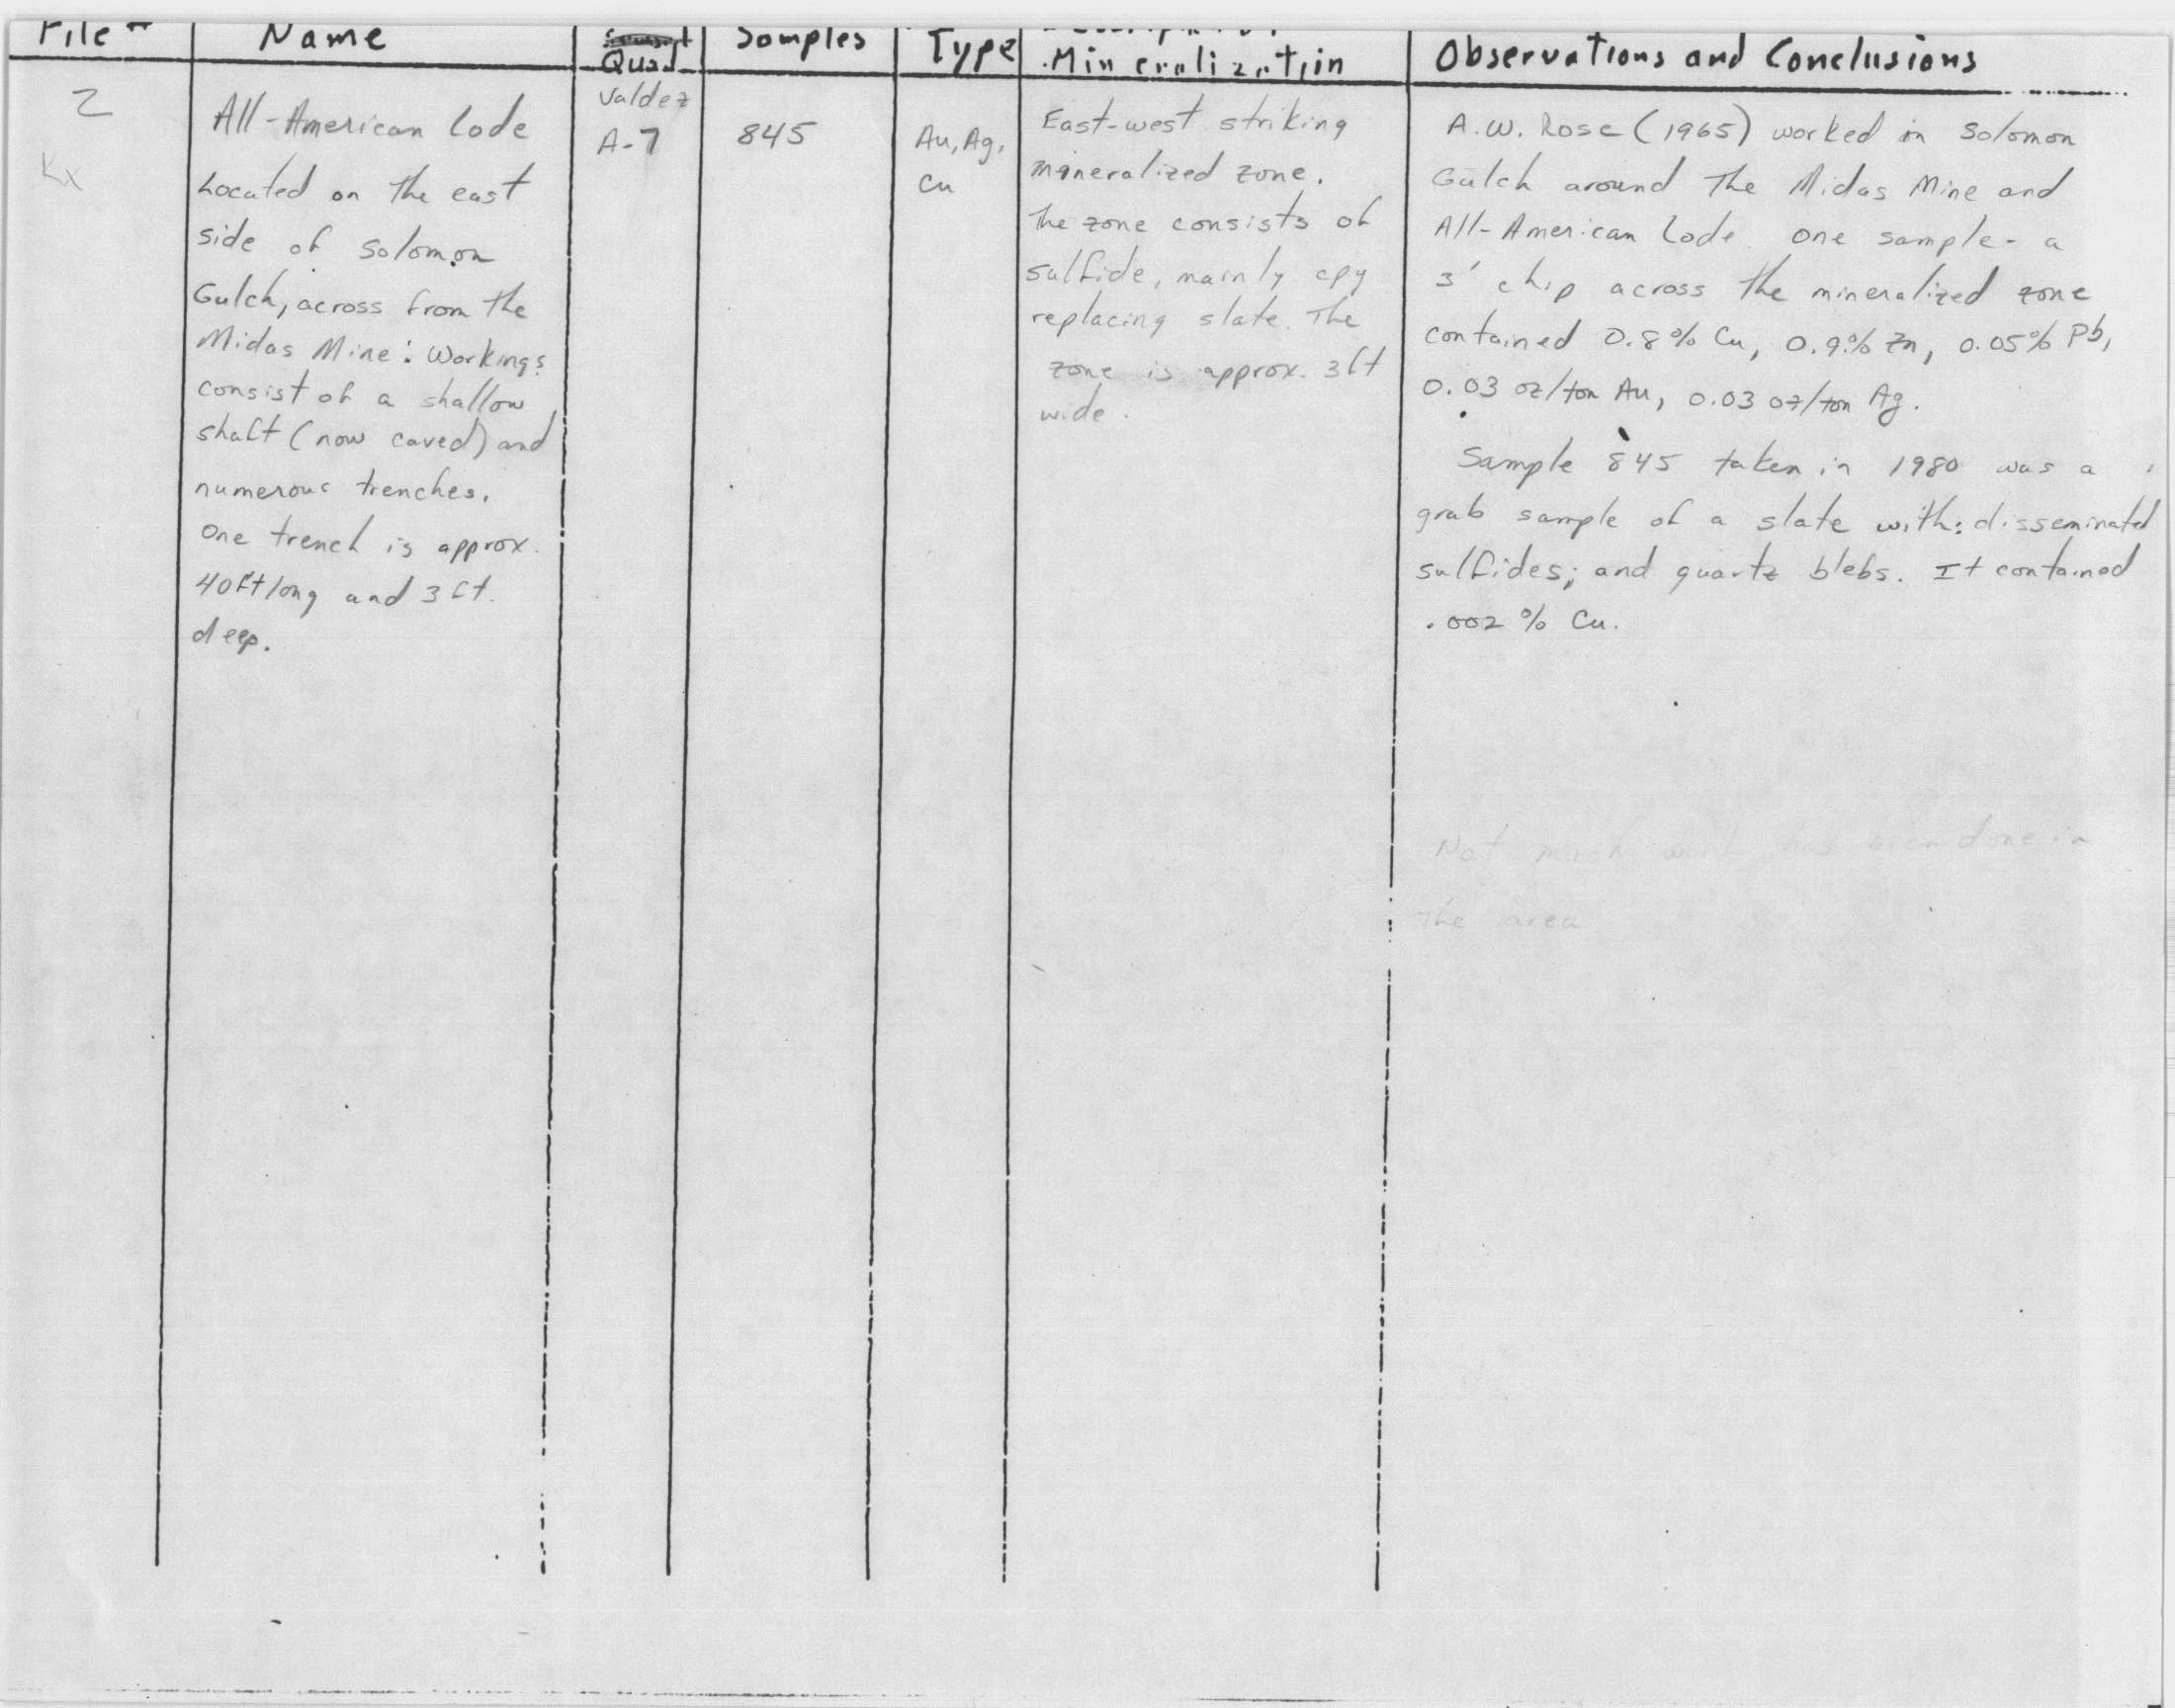 File #
Name
Quad
Samples
Type
Mineralization
Observations and Conclusions
2
Kx
All-American Lode
Located on the east
side of Solomon
Gulch, across from the
Midas Mine. Workings
consist of a shallow
shaft (now caved) and
numerous trenches.
One trench is approx.
40ft long and 3ft.
deep.
Valdez
A-7
845
Au, Ag,
Cu
East-west striking
mineralized zone.
The zone consists of
sulfide, mainly cpy
replacing slate. The
zone is approx. 3ft
wide.
A.W. Rose (1965) worked in Solomon
Gulch around The Midas Mine and
All-American Lode. One sample - a
3' chip across the mineralized zone
contained 0.8% Cu, 0.9% Zn, 0.05% Pb,
0.03 oz/ton Au, 0.03 oz/ton Ag.
Sample 845 taken in 1980 was a
grab sample of a slate with: disseminated
sulfides; and quartz blebs. It contained
.002 % Cu.
Not much work has been done in
the area